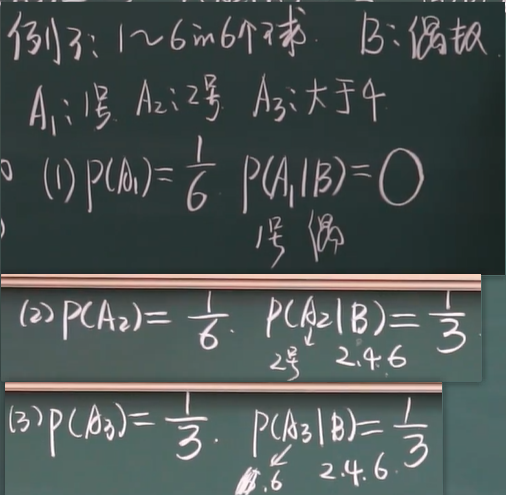 例3:1~6的6个球. B:偶数.
A₁:1号 A₂:2号 A₃:大于4
(1) P(A₁)=1/6 P(A₁|B)=0
1号 偶
(2) P(A₂)=1/6. P(A₂|B)=1/3
2号 2.4.6
(3) P(A₃)=1/3. P(A₃|B)=1/3
.6 2.4.6.